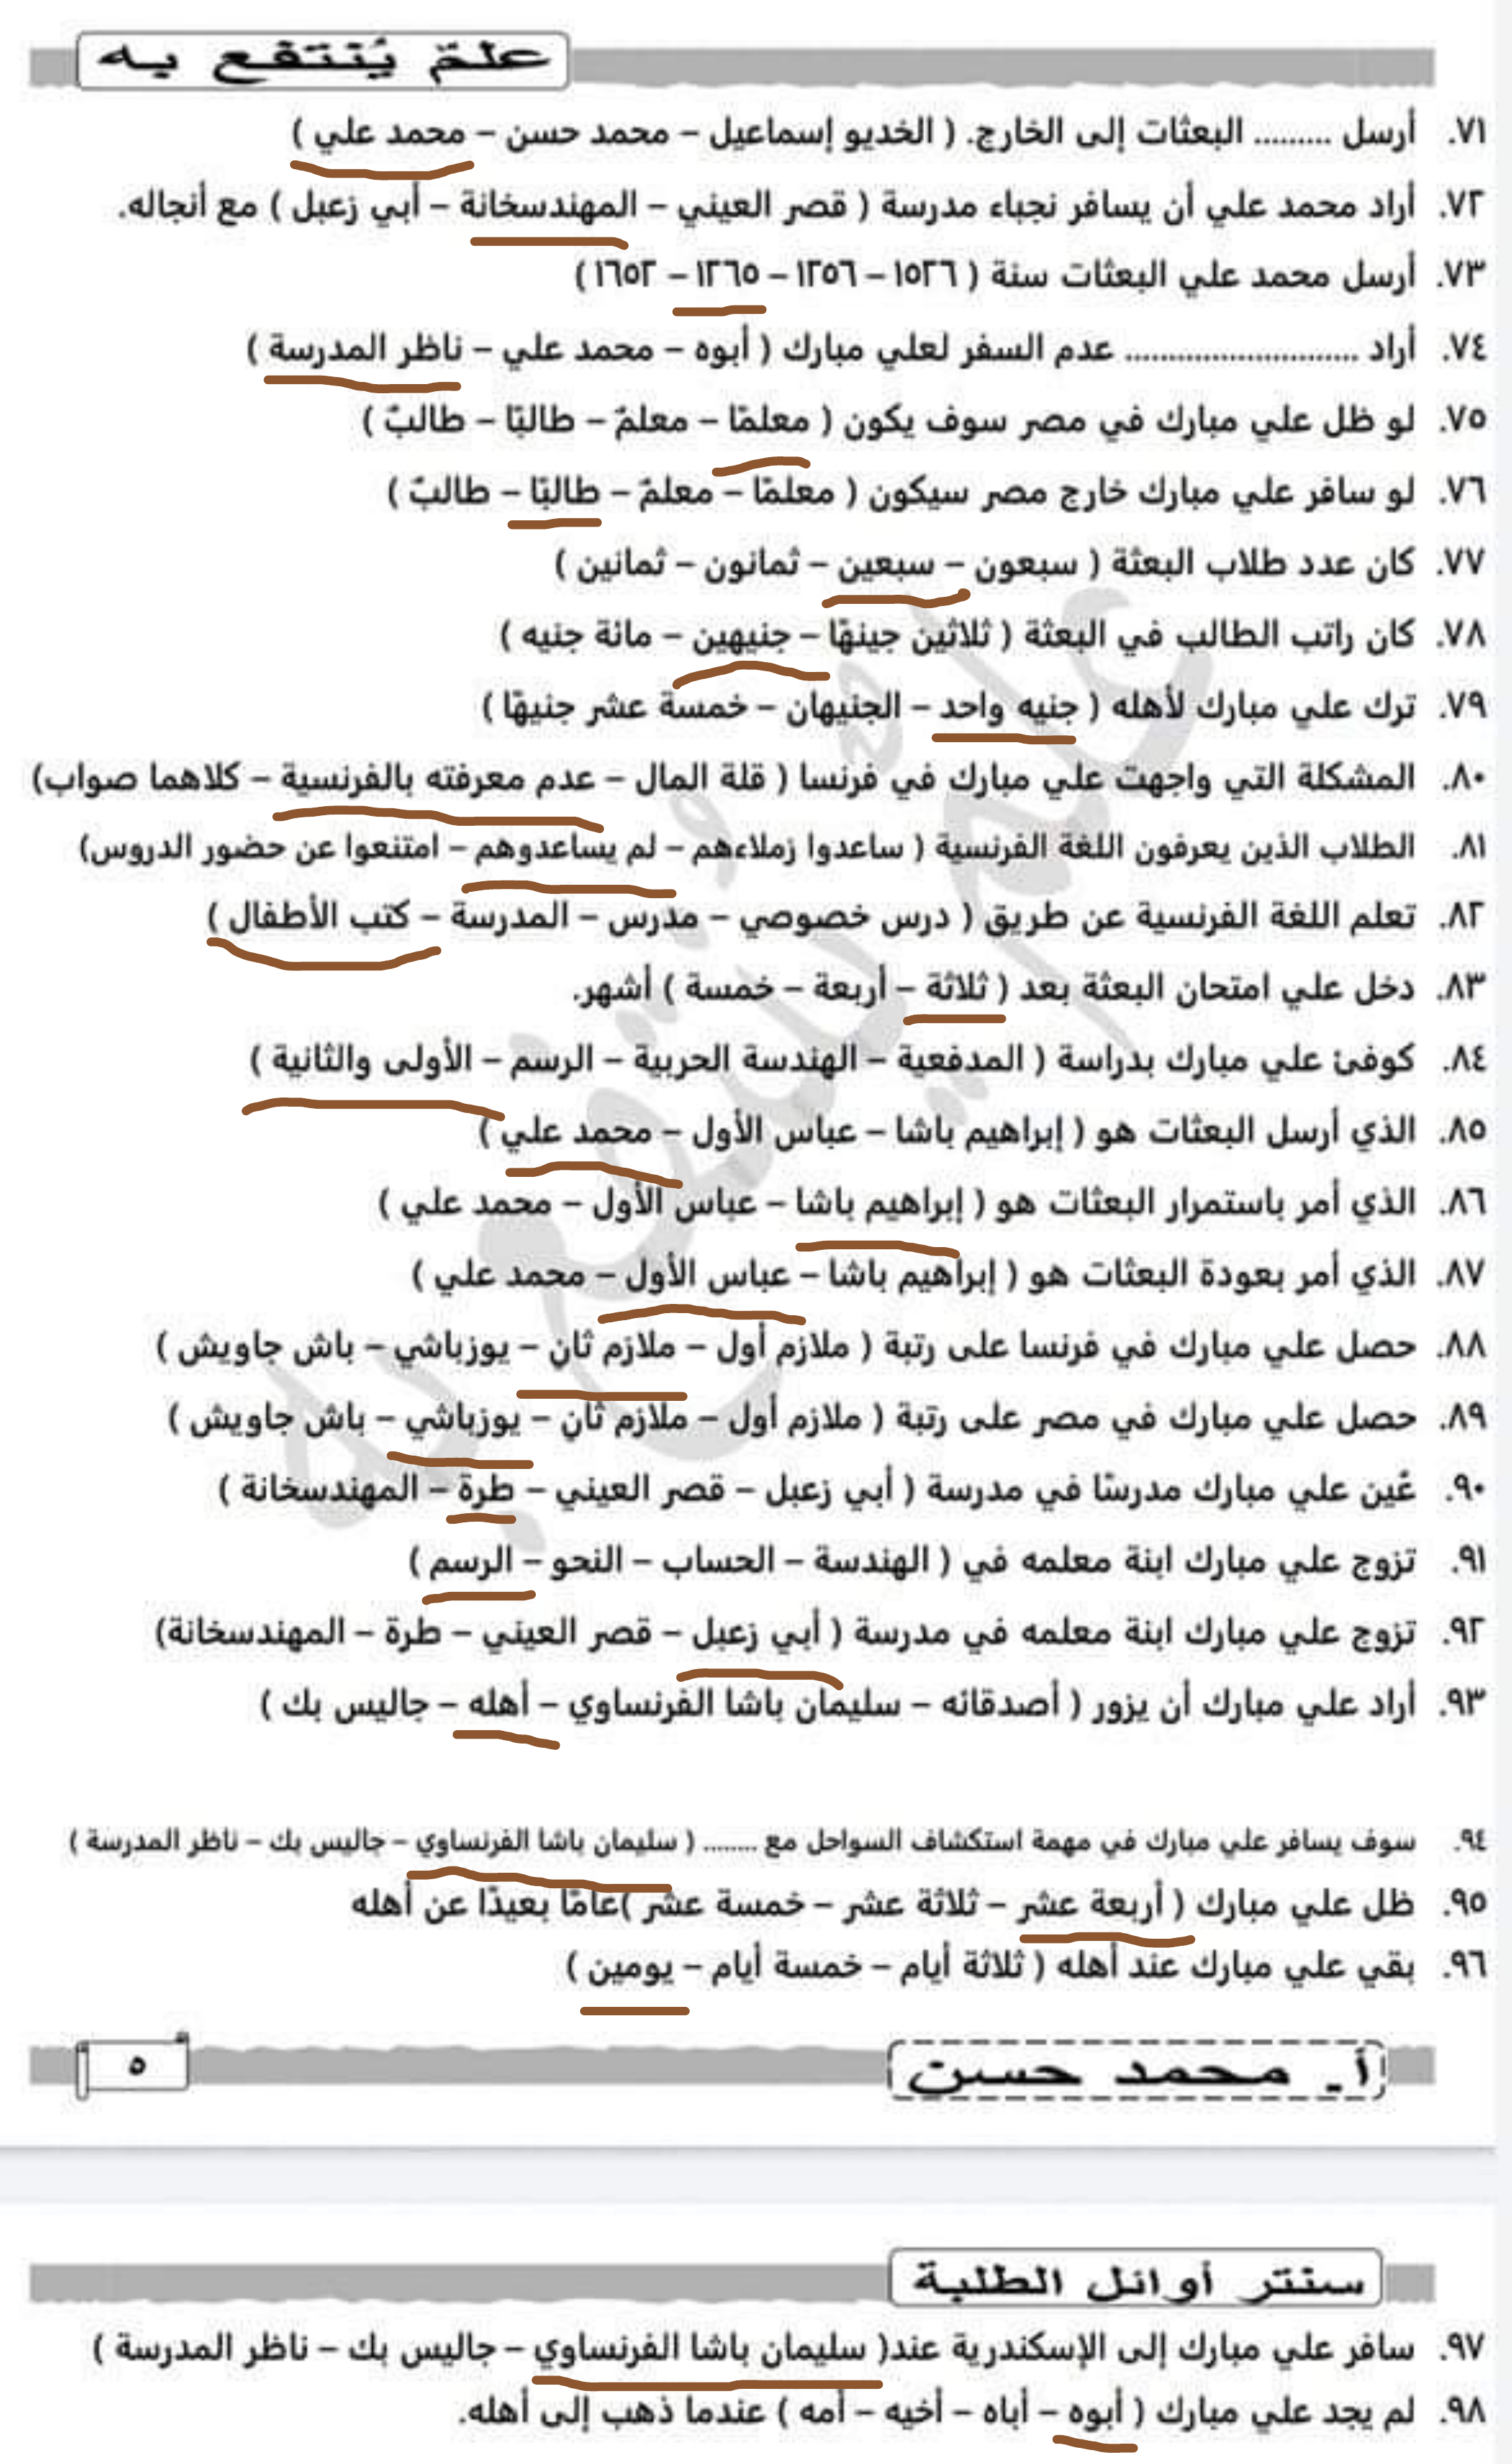 علمٌ يُنتفع به
٧١. أرسل ......... البعثات إلى الخارج. ( الخديو إسماعيل – محمد حسن – محمد علي )
٧٢. أراد محمد علي أن يسافر نجباء مدرسة ( قصر العيني – المهندسخانة – أبي زعبل ) مع أنجاله.
٧٣. أرسل محمد علي البعثات سنة ( ١٥٢٦ – ١٢٥٦ – ١٢٦٥ – ١٦٥٢ )
٧٤. أراد ........................... عدم السفر لعلي مبارك ( أبوه – محمد علي – ناظر المدرسة )
٧٥. لو ظل علي مبارك في مصر سوف يكون ( معلمًا – معلمٌ – طالبًا – طالبٌ )
٧٦. لو سافر علي مبارك خارج مصر سيكون ( معلمًا – معلمٌ – طالبًا – طالبٌ )
٧٧. كان عدد طلاب البعثة ( سبعون – سبعين – ثمانون – ثمانين )
٧٨. كان راتب الطالب في البعثة ( ثلاثين جينهًا – جنيهين – مائة جنيه )
٧٩. ترك علي مبارك لأهله ( جنيه واحد – الجنيهان – خمسة عشر جنيهًا )
٨٠. المشكلة التي واجهت علي مبارك في فرنسا ( قلة المال – عدم معرفته بالفرنسية – كلاهما صواب)
٨١. الطلاب الذين يعرفون اللغة الفرنسية ( ساعدوا زملاءهم – لم يساعدوهم – امتنعوا عن حضور الدروس)
٨٢. تعلم اللغة الفرنسية عن طريق ( درس خصوصي – مدرس – المدرسة – كتب الأطفال )
٨٣. دخل علي امتحان البعثة بعد ( ثلاثة – أربعة – خمسة ) أشهر.
٨٤. كوفئ علي مبارك بدراسة ( المدفعية – الهندسة الحربية – الرسم – الأولى والثانية )
٨٥. الذي أرسل البعثات هو ( إبراهيم باشا – عباس الأول – محمد علي )
٨٦. الذي أمر باستمرار البعثات هو ( إبراهيم باشا – عباس الأول – محمد علي )
٨٧. الذي أمر بعودة البعثات هو ( إبراهيم باشا – عباس الأول – محمد علي )
٨٨. حصل علي مبارك في فرنسا على رتبة ( ملازم أول – ملازم ثانٍ – يوزباشي – باش جاويش )
٨٩. حصل علي مبارك في مصر على رتبة ( ملازم أول – ملازم ثانٍ – يوزباشي – باش جاويش )
٩٠. عُين علي مبارك مدرسًا في مدرسة ( أبي زعبل – قصر العيني – طرة – المهندسخانة )
٩١. تزوج علي مبارك ابنة معلمه في ( الهندسة – الحساب – النحو – الرسم )
٩٢. تزوج علي مبارك ابنة معلمه في مدرسة ( أبي زعبل – قصر العيني – طرة – المهندسخانة)
٩٣. أراد علي مبارك أن يزور ( أصدقائه – سليمان باشا الفرنساوي – أهله – جاليس بك )
٩٤. سوف يسافر علي مبارك في مهمة استكشاف السواحل مع ........ ( سليمان باشا الفرنساوي – جاليس بك – ناظر المدرسة )
٩٥. ظل علي مبارك ( أربعة عشر – ثلاثة عشر – خمسة عشر )عامًا بعيدًا عن أهله
٩٦. بقي علي مبارك عند أهله ( ثلاثة أيام – خمسة أيام – يومين )
أ. محمد حسن
٥
سنتر أوائل الطلبة
٩٧. سافر علي مبارك إلى الإسكندرية عند( سليمان باشا الفرنساوي – جاليس بك – ناظر المدرسة )
٩٨. لم يجد علي مبارك ( أبوه – أباه – أخيه – أمه ) عندما ذهب إلى أهله.